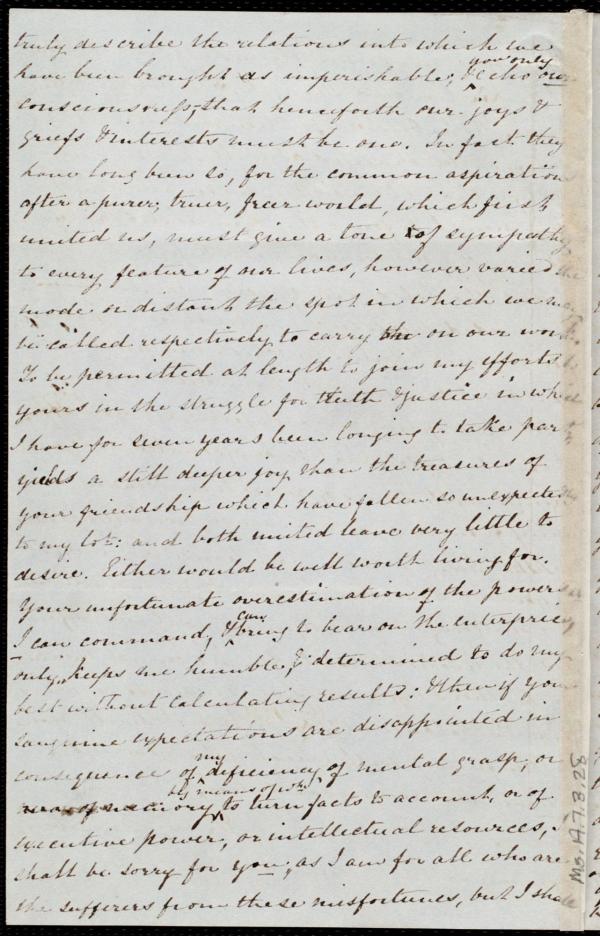 truly describe the relations into which we
have been brought as imperishable, & you only echo our
consciousness, that henceforth our joys &
griefs & interests must be one. In fact they
have long been so, for the common aspiration
after a purer, truer, freer world, which first
united us, must give a tone of sympathy
to every feature of our lives, however varied the
mode or distant the spot in which we may
be called respectively to carry on our work.
To be permitted at length to join my efforts to
yours in the struggle for truth & justice in which
I have for seven years been longing to take part
yields a still deeper joy than the treasures of
your friendship which have fallen so unexpectedly
to my lot: and both united leave very little to
desire. Either would be well worth living for.
Your unfortunate overestimation of the powers
I can command, & can bring to bear on the enterprise,
only keeps me humble, & determined to do my
best without calculating results: & then if your
sanguine expectations are disappointed in
consequence of my deficiency of mental grasp, or
memory by means of wh. to turn facts to account, or of
executive power, or intellectual resources, I
shall be sorry for you, as I am for all who are
the sufferers from these misfortunes, but I shall
Ms. A. 7. 3. 28